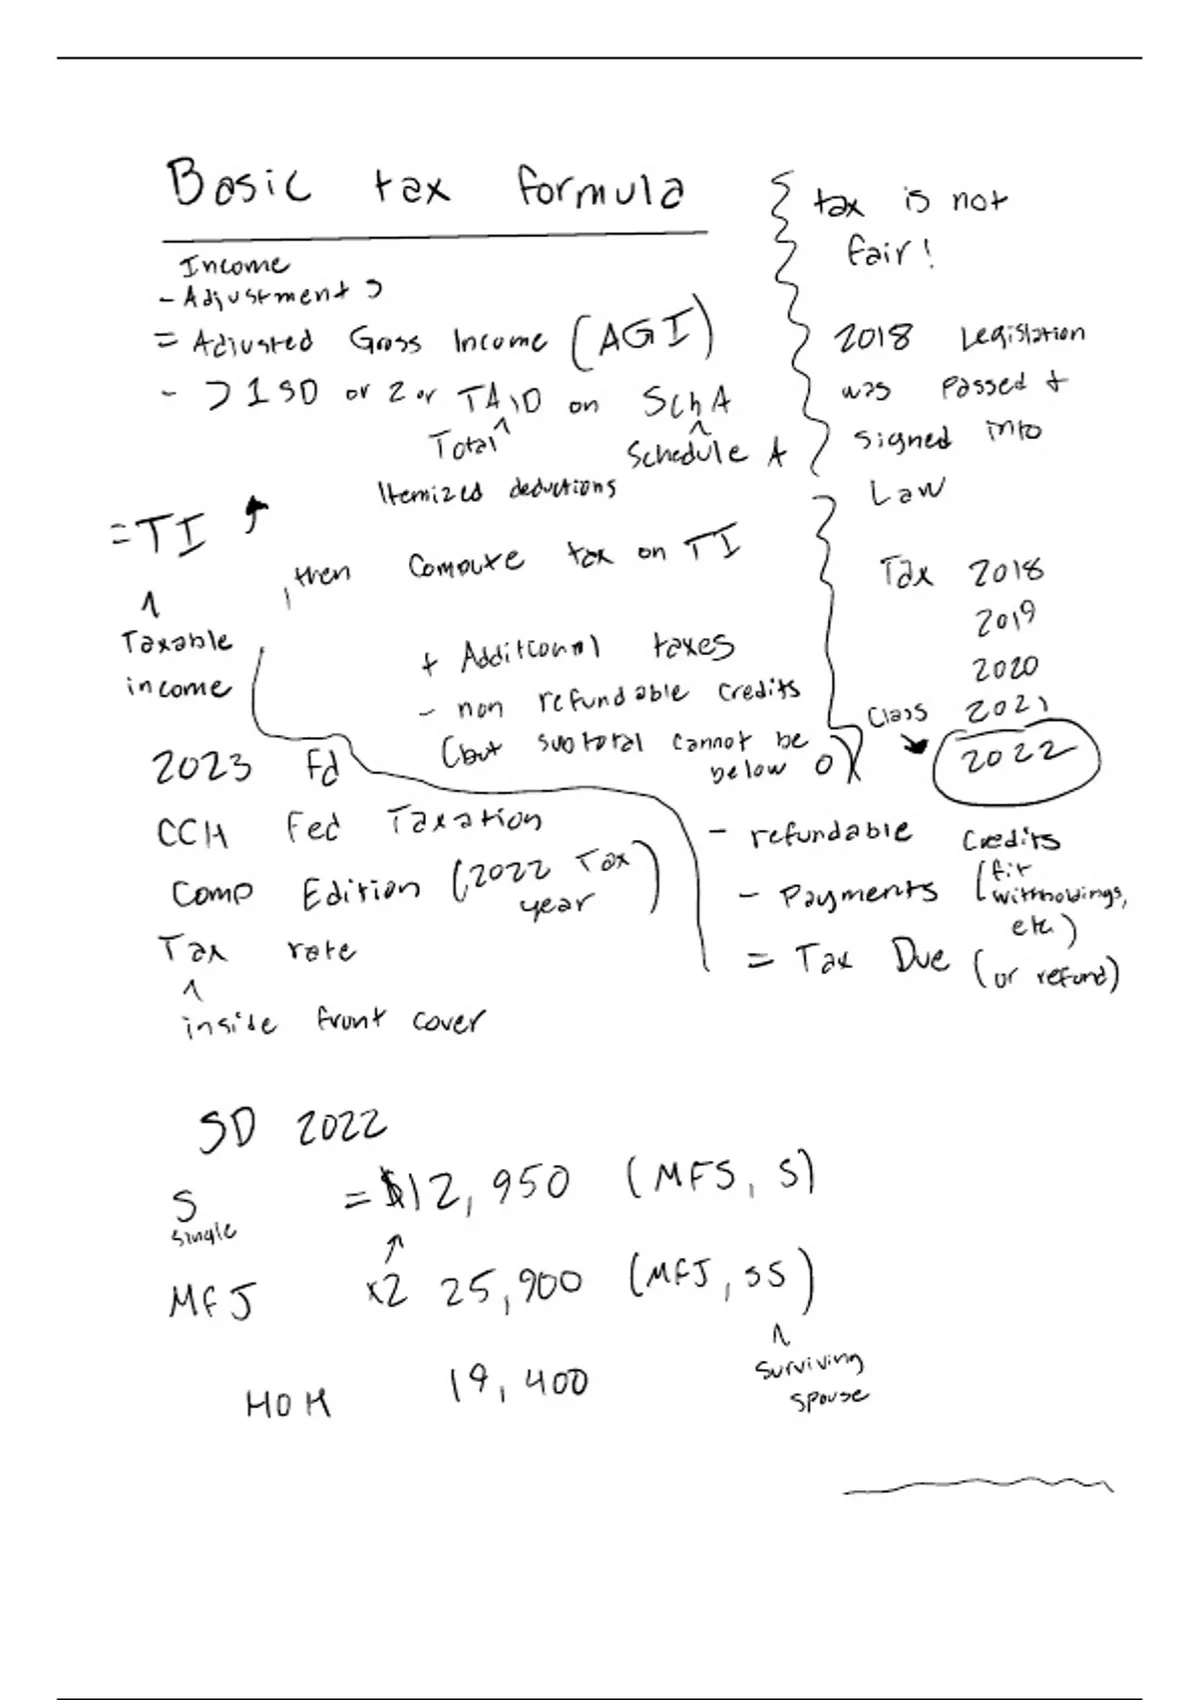 Basic tax formula
Income
- Adjustments
= Adjusted Gross Income (AGI)
- > 1 SD or 2 or TAID on Sch A
^
Total
^
Schedule A
Itemized deductions
= TI
^
Taxable
income
, then compute tax on TI
+ Additional taxes
- non refundable credits
(but subtotal cannot be
below 0)
- refundable credits
- Payments (fit
withholdings,
etc.)
= Tax Due (or refund)
tax is not
fair!
2018 Legislation
was passed +
signed into
Law
Tax 2018
2019
2020
2021
Class
2022
2023 Ed
CCH Fed Taxation
Comp Edition (2022 Tax
year)
Tax rate
^
inside front cover
SD 2022
S = $12,950 (MFS, S)
single
MFJ x2 25,900 (MFJ, SS)
^
surviving
spouse
HOH 19,400